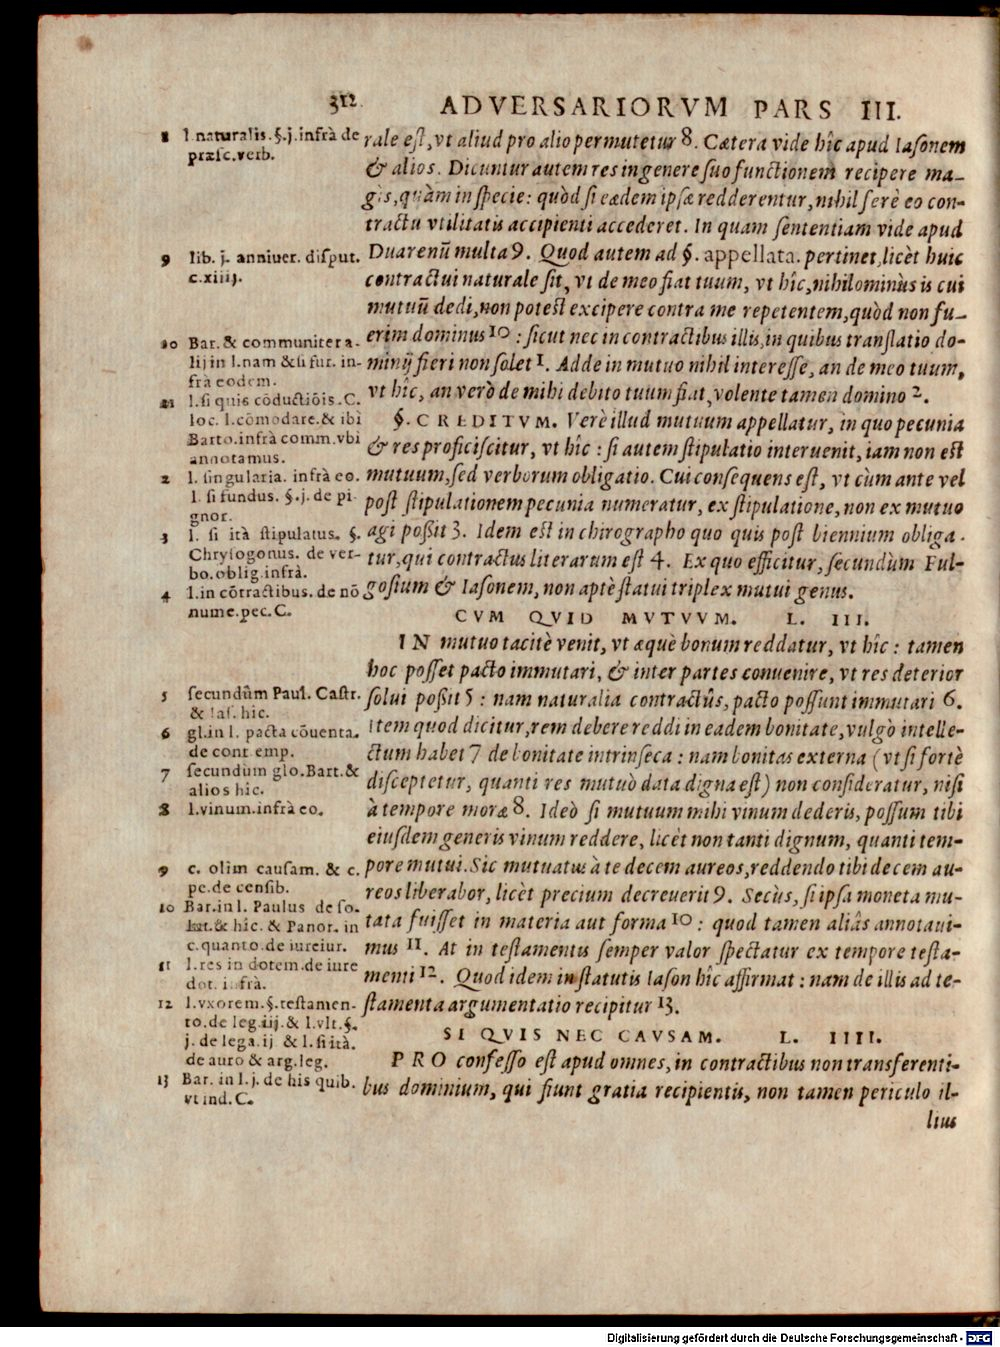 312 ADVERSARIORVM PARS III.
rale est, vt aliud pro alio permutetur 8. Cætera vide hîc apud Iasonem
& alios. Dicuntur autem res in genere suo functionem recipere ma-
gis, quàm in specie: quòd si eædem ipsæ redderentur, nihil ferè eo con-
tractu vtilitatis accipienti accederet. In quam sententiam vide apud
Duarenũ multa 9. Quod autem ad §. appellata. pertinet, licèt huic
contractui naturale sit, vt de meo fiat tuum, vt hîc, nihilominùs is cui
mutuũ dedi, non potest excipere contra me repetentem, quòd non fu-
erim dominus 10 : sicut nec in contractibus illis, in quibus translatio do-
minij fieri non solet 1. Adde in mutuo nihil interesse, an de meo tuum,
vt hîc, an verò de mihi debito tuum fiat, volente tamen domino 2.
§. CREDITVM. Verè illud mutuum appellatur, in quo pecunia
& res proficiscitur, vt hîc : si autem stipulatio interuenit, iam non est
mutuum, sed verborum obligatio. Cui consequens est, vt cùm ante vel
post stipulationem pecunia numeratur, ex stipulatione, non ex mutuo
agi poßit 3. Idem est in chirographo quo quis post biennium obliga-
tur, qui contractus literarum est 4. Ex quo efficitur, secundùm Ful-
gosium & Iasonem, non aptè statui triplex mutui genus.
CVM QVID MVTVVM. L. III.
IN mutuo tacitè venit, vt æquè bonum reddatur, vt hîc : tamen
hoc posset pacto immutari, & inter partes conuenire, vt res deterior
solui poßit 5 : nam naturalia contractûs, pacto possunt immutari 6.
Item quod dicitur, rem debere reddi in eadem bonitate, vulgò intelle-
ctum habet 7 de bonitate intrinseca : nam bonitas externa (vt si fortè
disceptetur, quanti res mutuò data digna est) non consideratur, nisi
à tempore moræ 8. Ideò si mutuum mihi vinum dederis, possum tibi
eiusdem generis vinum reddere, licèt non tanti dignum, quanti tem-
pore mutui. Sic mutuatus à te decem aureos, reddendo tibi decem au-
reos liberabor, licèt precium decreuerit 9. Secùs, si ipsa moneta mu-
tata fuisset in materia aut forma 10 : quod tamen aliâs annotaui-
mus 11. At in testamentis semper valor spectatur ex tempore testa-
menti 12. Quod idem in statutis Iason hîc affirmat : nam de illis ad te-
stamenta argumentatio recipitur 13.
SI QVIS NEC CAVSAM. L. IIII.
PRO confesso est apud omnes, in contractibus non transferenti-
bus dominium, qui fiunt gratia recipientis, non tamen periculo il-
lius
8 l. naturalis. §. j. infrà de
præsc. verb.
9 lib. j. anniuer. disput.
c. xiiij.
10 Bar. & communiter a-
lij in l. nam & si fur. in-
frà eodem.
11 l. si quis cõductiõis. C.
loc. l. cõmodare. & ibi
Barto. infrà comm. vbi
annotamus.
2 l. singularia. infrà eo.
l. si fundus. §. j. de pi-
gnor.
3 l. si ità stipulatus. §.
Chrysogonus. de ver-
bo. oblig. infrà.
4 l. in cõtractibus. de nõ
nume. pec. C.
5 secundùm Paul. Castr.
& Ias. hic.
6 gl. in l. pacta cõuenta.
de cont. emp.
7 secundùm glo. Bart. &
alios hic.
8 l. vinum. infrà eo.
9 c. olim causam. & c.
pe. de censib.
10 Bar. in l. Paulus de so-
lut. & hîc. & Panor. in
c. quanto. de iureiur.
11 l. res in dotem. de iure
dot. infrà.
12 l. vxorem. §. testamen-
to. de leg. iij. & l. vlt. §.
j. de lega. ij & l. si ità.
de auro & arg. leg.
13 Bar. in l. j. de his quib.
vt ind. C.
Digitalisierung gefördert durch die Deutsche Forschungsgemeinschaft - DFG